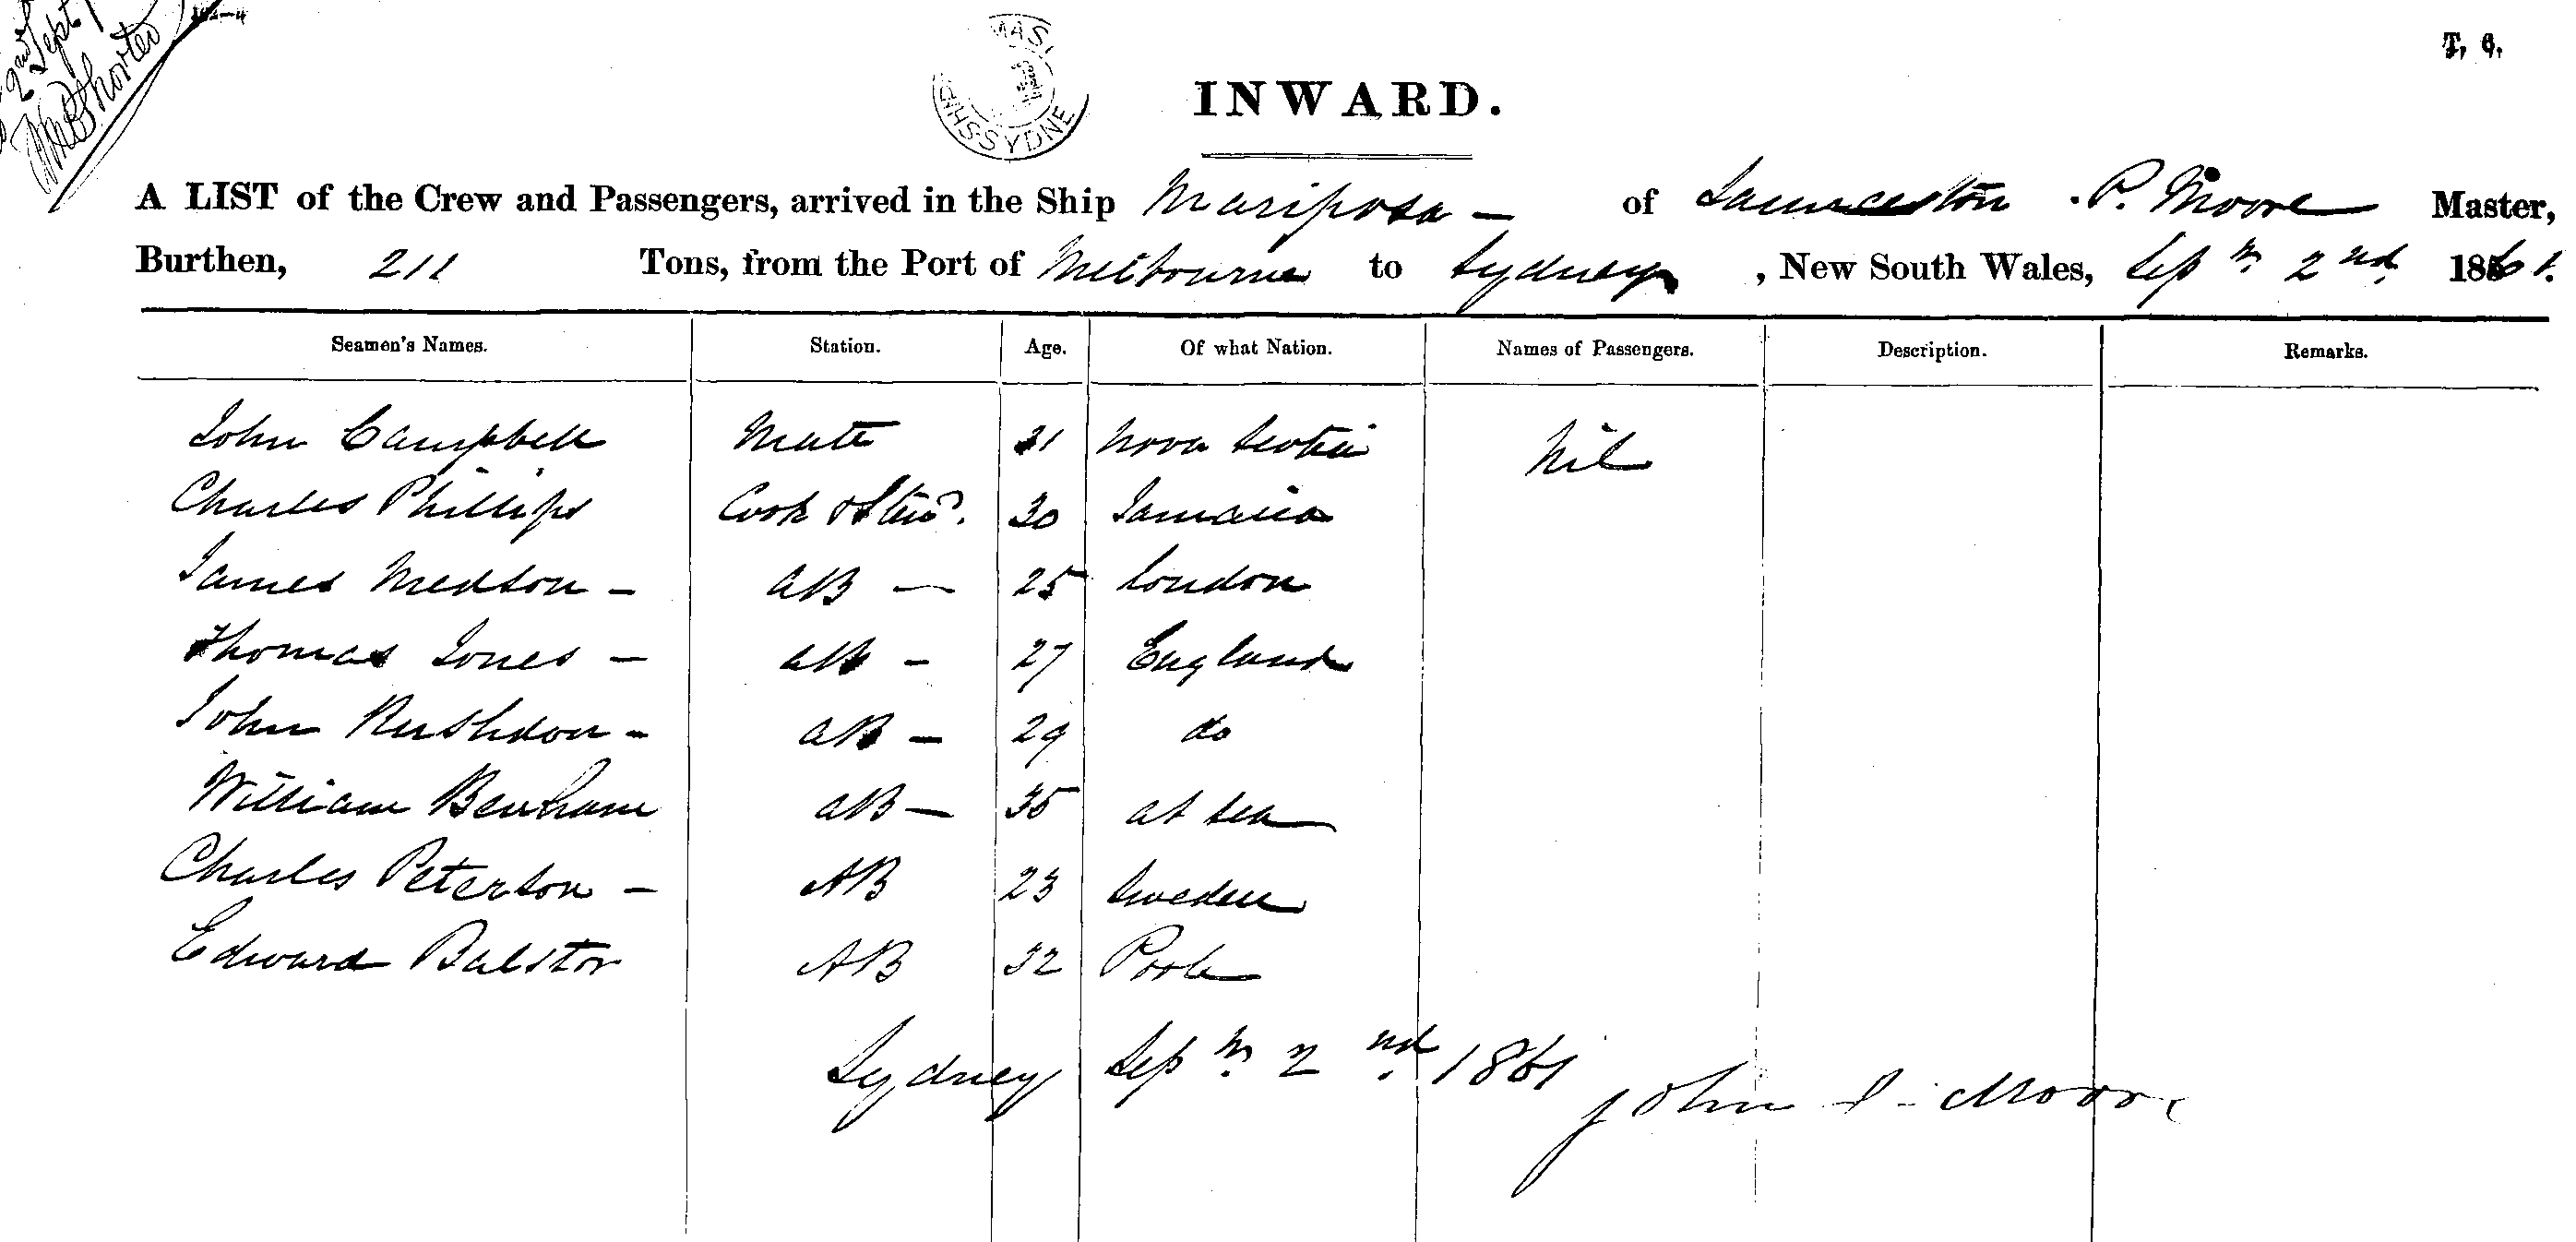 2nd Sept
T, 6.
INWARD.
A LIST of the Crew and Passengers, arrived in the Ship Mariposa — of Launceston . P. Moore Master,
Burthen, 211 Tons, from the Port of Melbourne to Sydney , New South Wales, Sep r. 2nd 1861.
Seamen's Names. Station. Age. Of what Nation. Names of Passengers. Description. Remarks.
John Campbell Mate 31 Nova Scotia Nil
Charles Phillips Cook & Stewd. 30 Jamaica
James Medson — AB — 25 London
Thomas Jones — AB — 27 England
John Rushdon — AB — 29 do
William Benham AB — 35 at sea
Charles Peterson — AB 23 Sweden
Edward Balstor AB 32 Poole
Sydney Sep r. 2nd 1861
John P. Moore